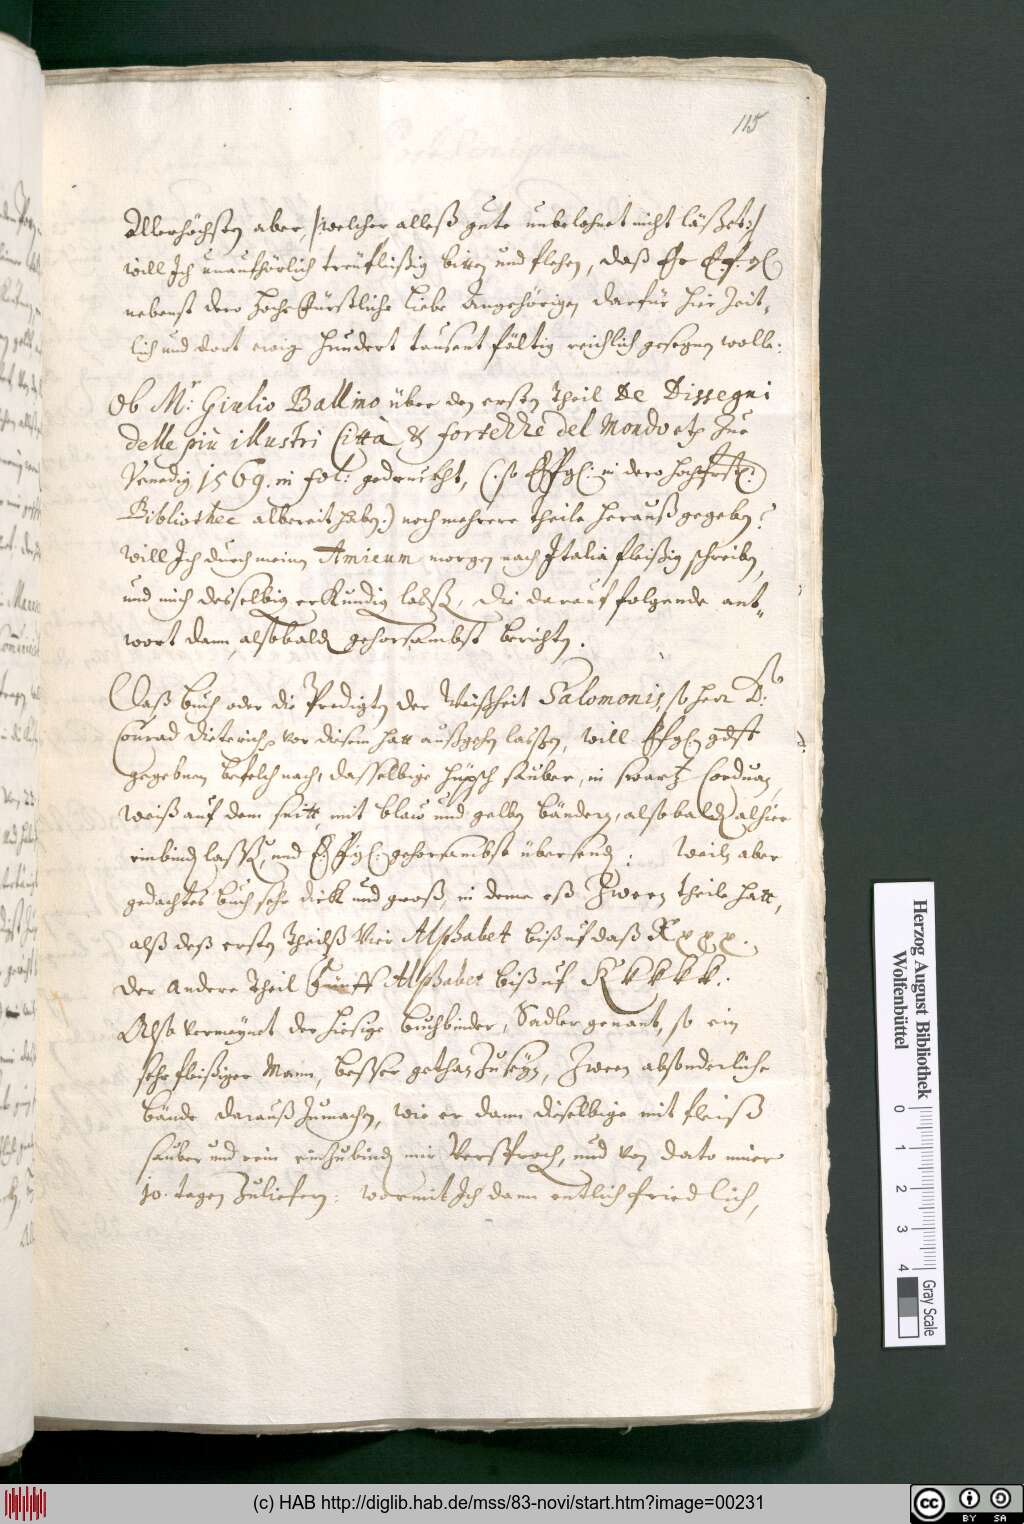 115
Allerhöchsten aber, /: welcher alleß gute unbelohnet nicht läßet :/
will Ich unaufhörlich treüfleißig bitten und flehen, daß Er E. f. g.
nebenst dero hoche Fürstliche liebe Angehörigen darfür hier Zeit-
lich und dort ewig hundert tausent fältig reichlich gesegnen wolle.
Ob Mr: Giulio Ballino über den ersten Theil De Dissegni
delle più illustri Città & fortezze del Mondo etc Zue
Venedig 1569. in fol: gedruckht, (: so E. F. g. in dero hochfürstl:
Bibliothec albereit haben :) noch mehrere theile herauß gegeben?
will Ich durch meinen Amicum morgen nach Italia fleißig schreiben,
und mich desselbigen erkundigen lassen, die darauf folgende ant-
wort dann, alsobalden gehorsambst berichten.
Daß buch oder die Predigten der Weißheit Salomonis, so herr D.
Conrad Dieterich vor diesem hatt außgehen lassen, will E. f. g. gdst
gegebnem befelch nach, dasselbige hüpsch sauber, in swartz Corduan,
weiß auf dem snitt, mit blaw und gelben bändern, alsobalden alhier
einbinden lassen, und E. F. g. gehorsambst übersenden: Weiln aber
gedachtes buch sehr dick und groß, in deme eß Zween theile hatt,
alß deß ersten Theilß Vier Alphabet biß uf daß Xxxx.,
der andere Theil Fünff Alphabet biß uf Kkkkk.
Also vermeynet der hiesige buchbinder, Sadler genant, so ein
sehr fleißiger Mann, besser gethan Zu seyn, Zween absonderliche
bände darauß Zumachen, wie er dann dieselbige mit fleiß
sauber und rein einzubinden mir Versproch, und von dato inner
10. tagen Zuliefern: wormit Ich dann entlich friedlich,
Herzog August Bibliothek
Wolfenbüttel
0 1 2 3 4
Gray Scale
(c) HAB http://diglib.hab.de/mss/83-novi/start.htm?image=00231
CC BY SA